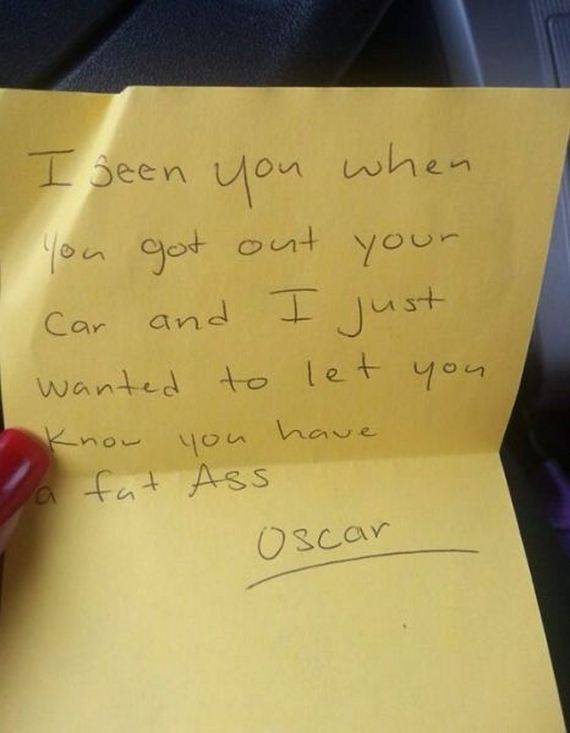 I seen you when
you got out your
car and I just
wanted to let you
know you have
a fat Ass
Oscar